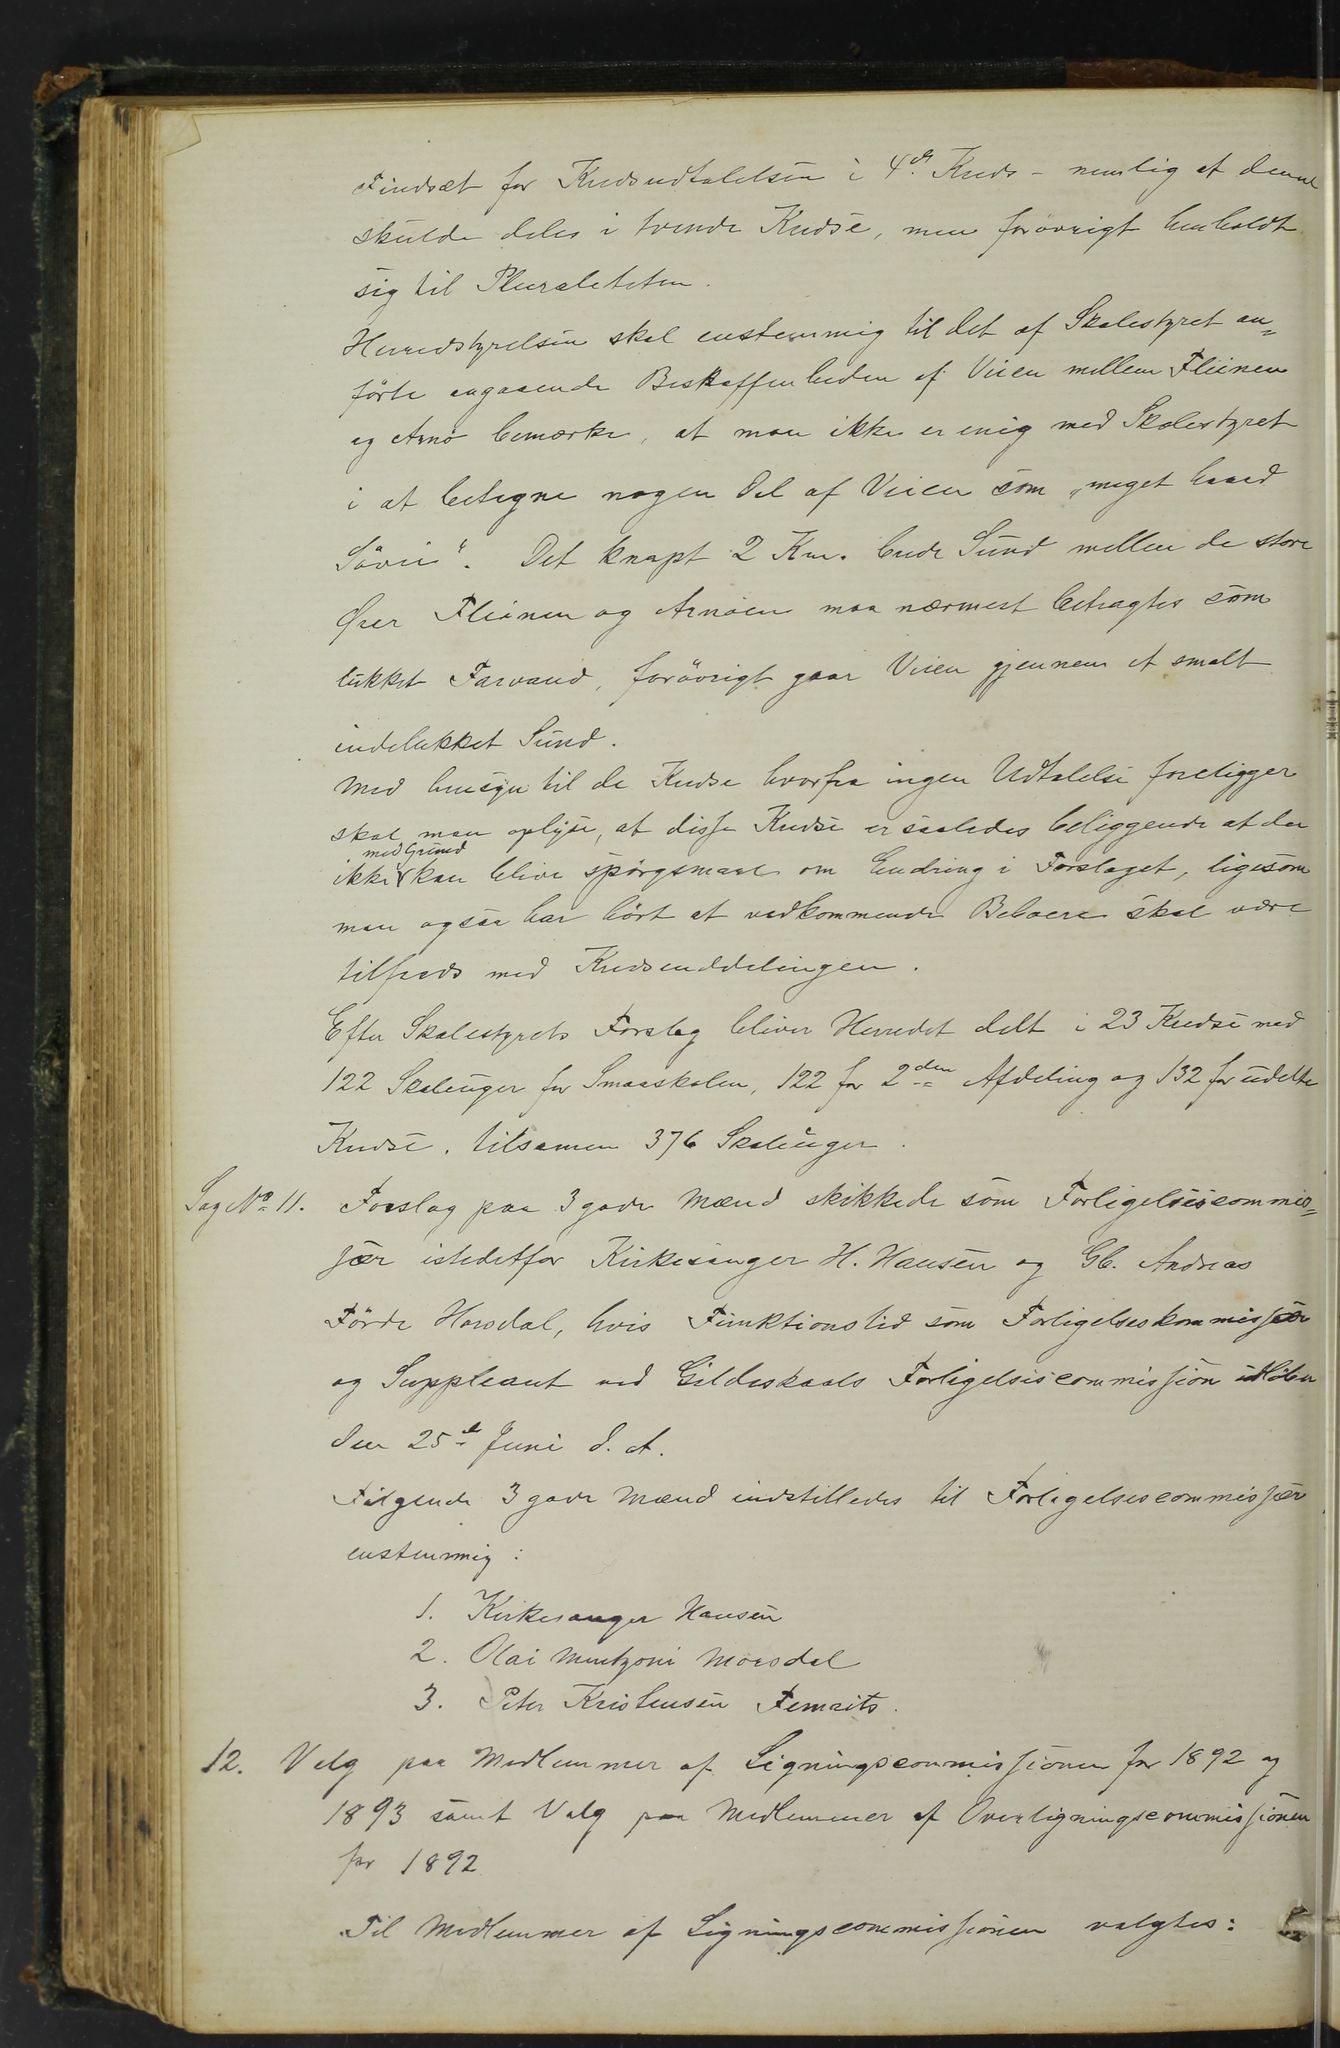 Findsæt for Kredsudtalelsen i 4de Kreds – nemlig at denne
skulde deles i tvende Kredse, men forøvrigt henholdt
sig til Pluraliteten.
Herredstyrelsen skal enstemmig til det af Skolestyret an=
førte angaaende Beskaffenheden af Veien mellem Fleinen
og Arnø bemærke, at man ikke er enig med Skolestyret
i at betegne nogen Del af Veien som „meget haard
Søvei“. Det knapt 2 Km. brede Sund mellem de store
Øer Fleinen og Arnøen maa nærmest betragtes som
lukket Farvand, forøvrigt gaar Veien gjennem et smalt
indelukket Sund.
Med hensyn til de Kredse hvorfra ingen Udtalelse foreligger
skal man oplyse, at disse Kredse er saaledes beliggende at der
ikke med Grund kan blive spørgsmaal om Endring i Forslaget, ligesom
man ogsaa har hørt at vedkommende Beboere skal være
tilfreds med Kredsinddelingen.
Efter Skolestyrets Forslag bliver Herredet delt i 23 Kredse med
122 Skoleuger for Smaaskolen, 122 for 2den Afdeling og 132 for udelte
Kredse, tilsamen 376 Skoleuger.
Sag No 11. Forslag paa 3 gode Mænd skikkede som Forligelsescommis=
sær istedetfor Kirkesanger H. Hansen og Gb. Andreas
Førde Horsdal, hvis Funktionstid som Forligelseskommissær
og Suppleant ved Gildeskaals Forligelsescommission udløber
den 25de Juni d. A.
Følgende 3 gode Mænd indstilledes til Forligelsescommissær
enstemmig:
1. Kirkesanger Hansen
2. Olai Mentzoni Morsdal
3. Peter Kristensen Femris.
12. Valg paa Medlemmer af Ligningscommissionen for 1892 og
1893 samt Valg paa Medlemmer af Overligningscommissionen
for 1892
Til Medlemmer af Ligningscommissionen valgtes: